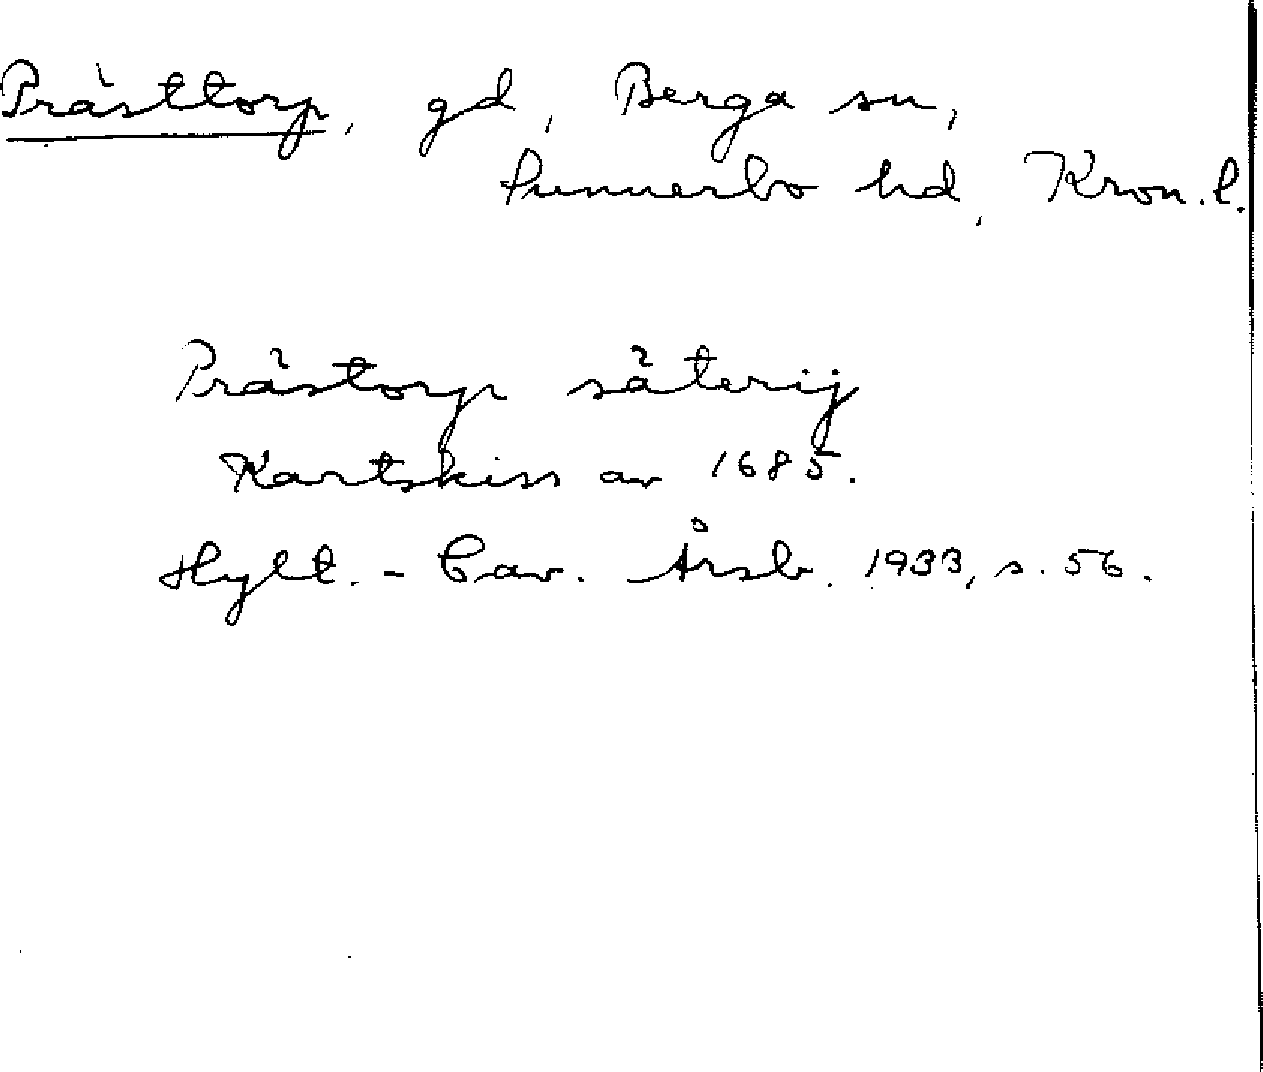 Prästtorp, gd, Berga sn,
Sunnerbo hd, Kron. l.
Prästorp säterij
Kartskiss av 1685.
Hylt. - Cav. Årsb. 1933, s. 56.